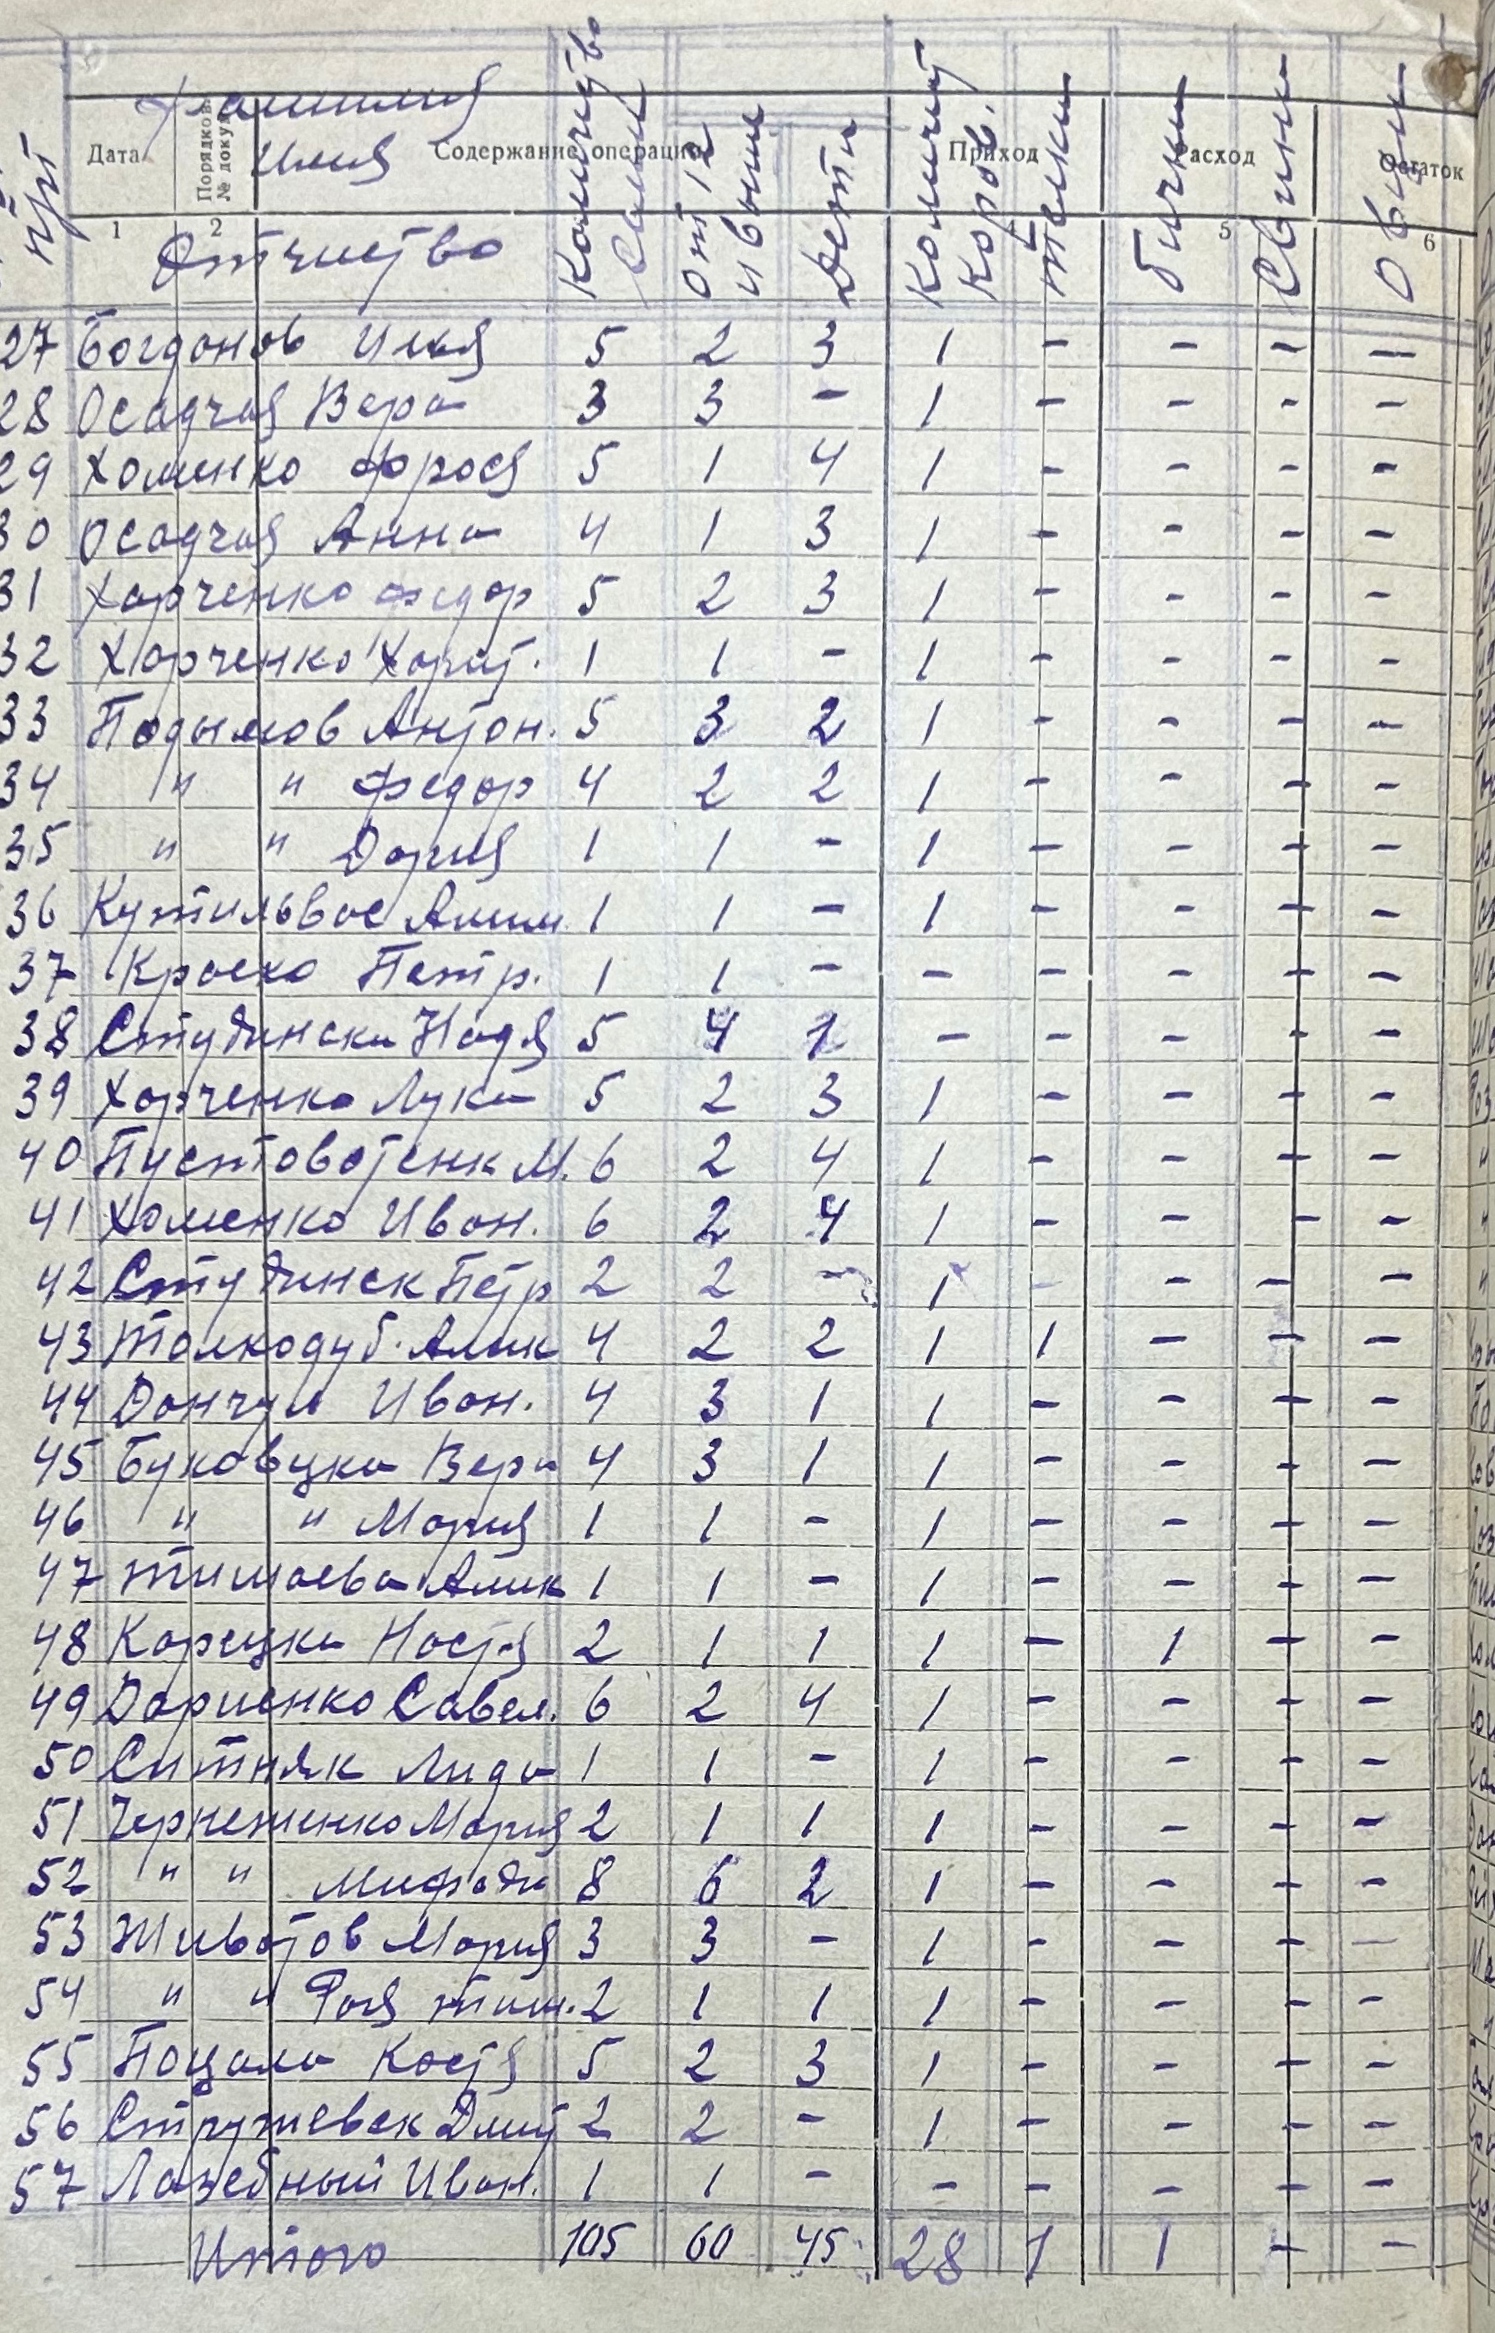 Фамилия
Имя
Отчество
Дата
Порядков. № докум.
Содержание операции
Приход
Расход
Остаток
1 2 4 5 6
Количество Семьи
От 12 и выше
Дети
Количест Коров.
Телки
Бички
Свини
Овци
27 Богданов Илья 5 2 3 1 - - - -
28 Осадчая Вера 3 3 - 1 - - - -
29 Хоменко Фрося 5 1 4 1 - - - -
30 Осадчая Анна 4 1 3 1 - - - -
31 Харченко Федор 5 2 3 1 - - - -
32 Харченко Харит. 1 1 - 1 - - - -
33 Подымов Антон. 5 3 2 1 - - - -
34 " " Федор 4 2 2 1 - - - -
35 " " Дария 1 1 - 1 - - - -
36 Кутильвас Аким 1 1 - 1 - - - -
37 Краско Петр. 1 1 - - - - - -
38 Студински Надя 5 4 1 - - - - -
39 Харченко Лука 5 2 3 1 - - - -
40 Пустовотенк М. 6 2 4 1 - - - -
41 Хоменко Иван. 6 2 4 1 - - - -
42 Студинск Петр 2 2 - 1 - - - -
43 Толкодуб. Алек 4 2 2 1 1 - - -
44 Дончул Иван. 4 3 1 1 - - - -
45 Буковцка Вера 4 3 1 1 - - - -
46 " " Мария 1 1 - 1 - - - -
47 Тимаева Алек 1 1 - 1 - - - -
48 Корецки Настя 2 1 1 1 - 1 - -
49 Дариенко Савел. 6 2 4 1 - - - -
50 Ситняк Лида 1 1 - 1 - - - -
51 Чернеженко Мария 2 1 1 1 - - - -
52 " " Мифоди 8 6 2 1 - - - -
53 Животов Мария 3 3 - 1 - - - -
54 " " Рая тим. 2 1 1 1 - - - -
55 Поцала Костя 5 2 3 1 - - - -
56 Стружевск Дмит 2 2 - 1 - - - -
57 Лазебный Иван. 1 1 - - - - - -
Итого 105 60 45 28 1 1 - -